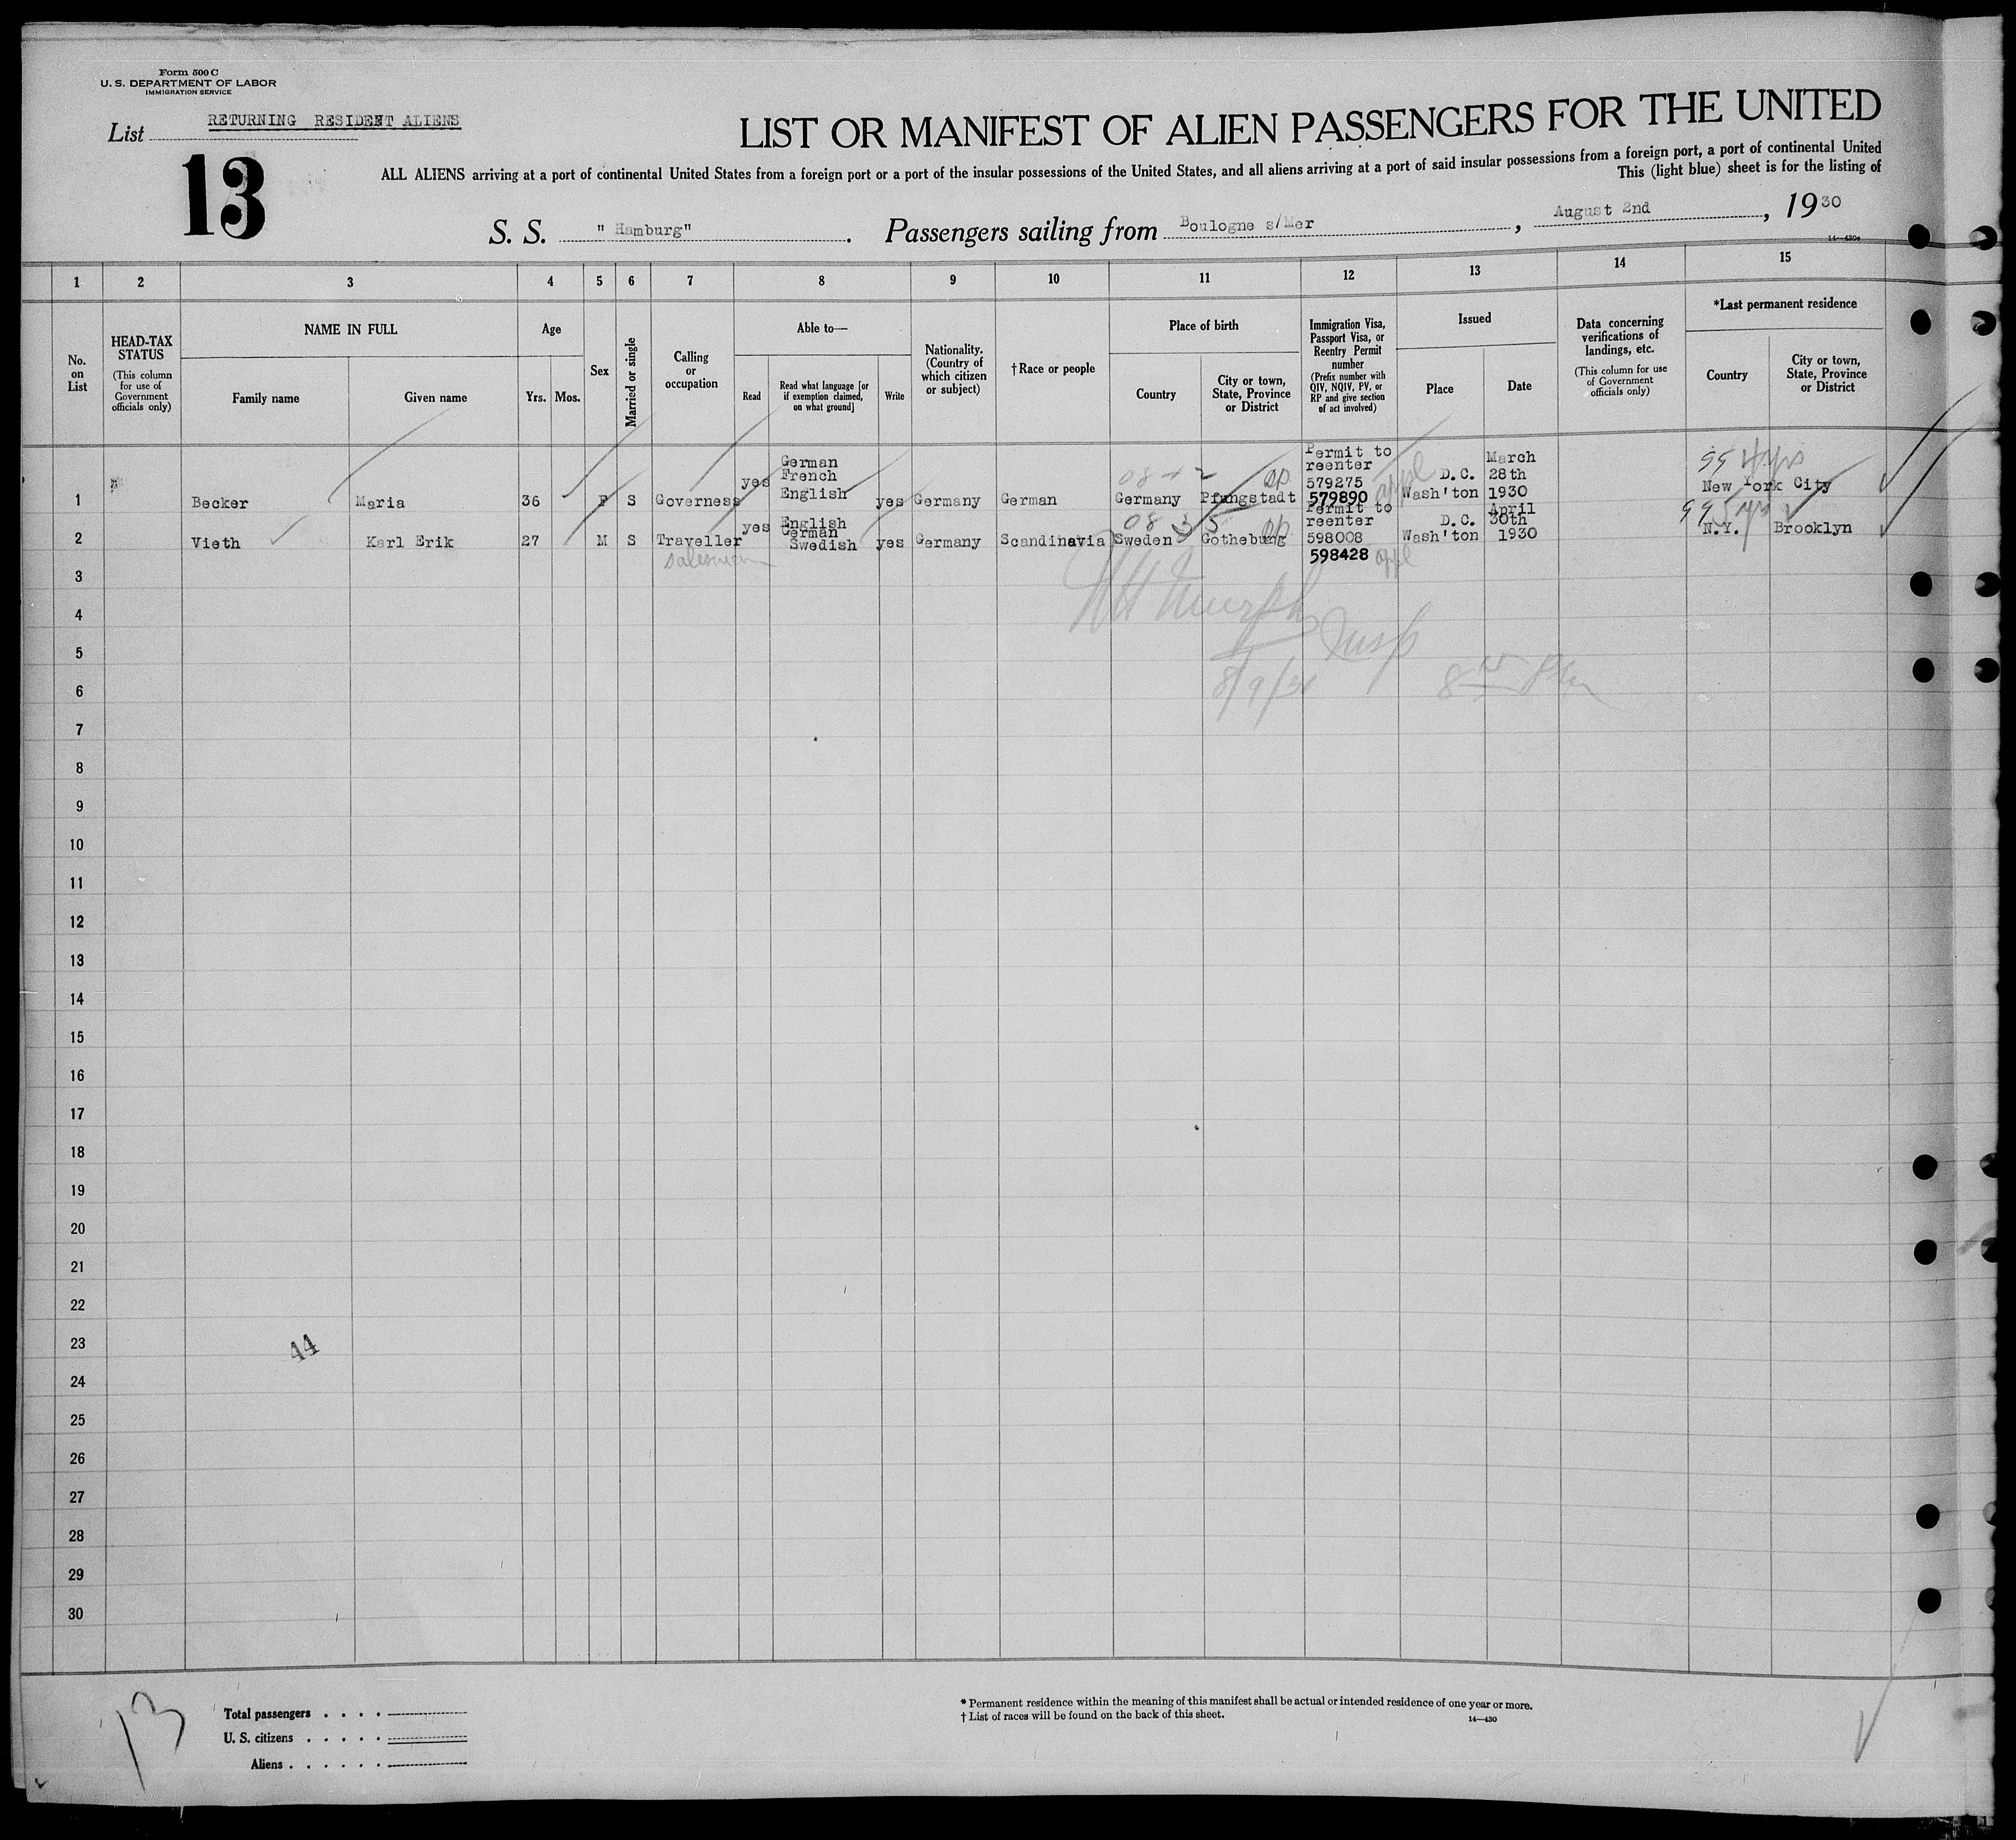 Form 500 C
U. S. DEPARTMENT OF LABOR
IMMIGRATION SERVICE
List RETURNING RESIDENT ALIENS
13
LIST OR MANIFEST OF ALIEN PASSENGERS FOR THE UNITED
ALL ALIENS arriving at a port of continental United States from a foreign port or a port of the insular possessions of the United States, and all aliens arriving at a port of said insular possessions from a foreign port, a port of continental United
This (light blue) sheet is for the listing of
S. S. " Hamburg" . Passengers sailing from Boulogne s/Mer , August 2nd , 1930
14—430c
1 2 3 4 5 6 7 8 9 10 11 12 13 14 15
No. on List
HEAD-TAX STATUS
(This column for use of Government officials only)
NAME IN FULL
Family name
Given name
Age
Yrs.
Mos.
Sex
Married or single
Calling or occupation
Able to—
Read
Read what language [or if exemption claimed, on what ground]
Write
Nationality. (Country of which citizen or subject)
†Race or people
Place of birth
Country
City or town, State, Province or District
Immigration Visa, Passport Visa, or Reentry Permit number
(Prefix number with QIV, NQIV, PV, or RP and give section of act involved)
Issued
Place
Date
Data concerning verifications of landings, etc.
(This column for use of Government officials only)
*Last permanent residence
Country
City or town, State, Province or District
1 Becker Maria 36 F S Governess yes German French English yes Germany German Germany Pfungstadt Permit to reenter 579275 579890 appl D.C. Wash'ton March 28th 1930 99 4 yrs New York City
2 Vieth Karl Erik 27 M S Traveller salesman yes English German Swedish yes Germany Scandinavia 08 3 5 Sweden Gotheburg Permit to reenter 598008 598428 appl D.C. Wash'ton April 30th 1930 99 5 yrs N.Y. Brooklyn
3
4
5
Insp
6
8/9/30
7
8
9
10
11
12
13
14
15
16
17
18
19
20
21
22
23
44
24
25
26
27
28
29
30
13
Total passengers . . . .
U. S. citizens . . . . .
Aliens . . . . . .
* Permanent residence within the meaning of this manifest shall be actual or intended residence of one year or more.
† List of races will be found on the back of this sheet.
14—430